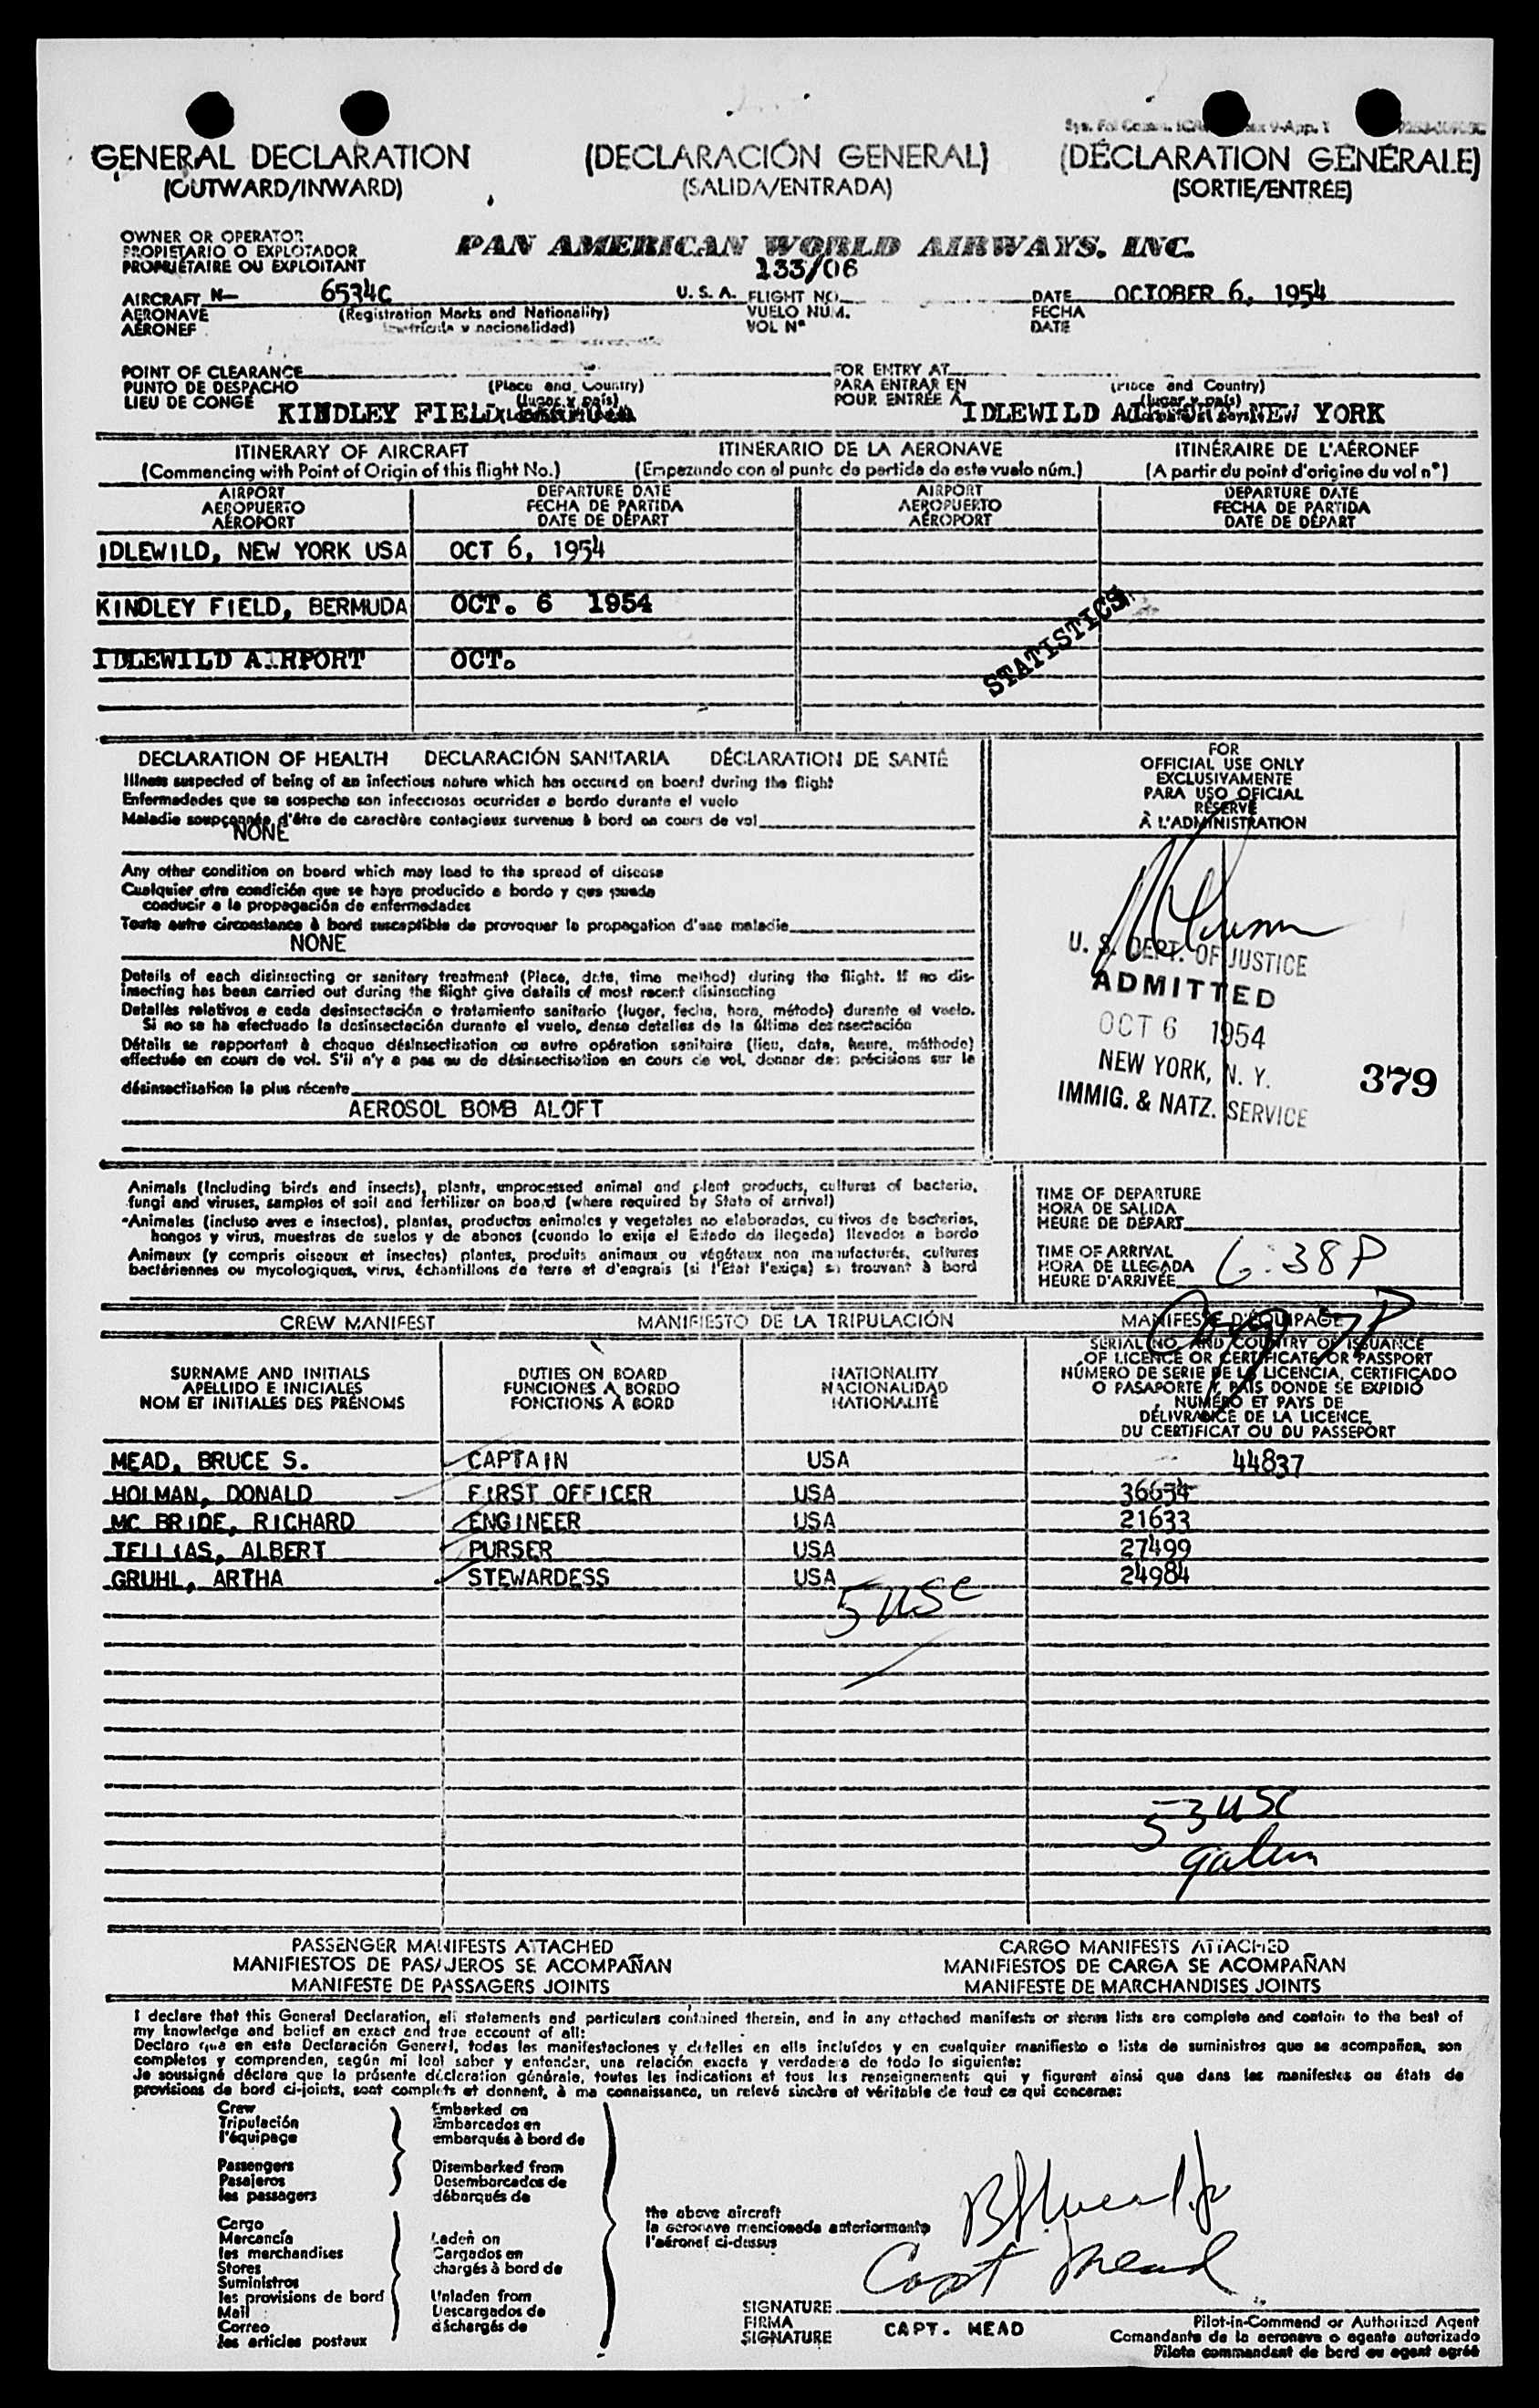 GENERAL DECLARATION (DECLARACIÓN GENERAL) (DÉCLARATION GÉNÉRALE)
(OUTWARD/INWARD) (SALIDA/ENTRADA) (SORTIE/ENTRÉE)
OWNER OR OPERATOR
PROPIETARIO O EXPLOTADOR
PROPRIÉTAIRE OU EXPLOITANT
PAN AMERICAN WORLD AIRWAYS, INC.
133/06
AIRCRAFT N- 6534C U. S. A. FLIGHT NO. DATE OCTOBER 6, 1954
AERONAVE (Registration Marks and Nationality) VUELO NÚM. FECHA
AÉRONEF (matrícula y nacionalidad) VOL Nº DATE
POINT OF CLEARANCE FOR ENTRY AT
PUNTO DE DESPACHO (Place and Country) PARA ENTRAR EN (Place and Country)
LIEU DE CONGÉ (lugar y país) POUR ENTRÉE À (lugar y país)
KINDLEY FIELD BERMUDA IDLEWILD AIRPORT NEW YORK
ITINERARY OF AIRCRAFT ITINERARIO DE LA AERONAVE ITINÉRAIRE DE L'AÉRONEF
(Commencing with Point of Origin of this flight No.) (Empezando con el punto de partida de este vuelo núm.) (A partir du point d'origine du vol nº)
AIRPORT DEPARTURE DATE AIRPORT DEPARTURE DATE
AEROPUERTO FECHA DE PARTIDA AEROPUERTO FECHA DE PARTIDA
AÉROPORT DATE DE DÉPART AÉROPORT DATE DE DÉPART
IDLEWILD, NEW YORK USA OCT 6, 1954
KINDLEY FIELD, BERMUDA OCT. 6 1954
IDLEWILD AIRPORT OCT.
STATISTICS
DECLARATION OF HEALTH DECLARACIÓN SANITARIA DÉCLARATION DE SANTÉ
Illness suspected of being of an infectious nature which has occured on board during the flight
Enfermedades que se sospecha son infecciosas ocurridas a bordo durante el vuelo
Maladie soupçonnée d'être de caractère contagieux survenue à bord au cours de vol
NONE
Any other condition on board which may lead to the spread of disease
Cualquier otra condición que se haya producido a bordo y que pueda
conducir a la propagación de enfermedades
Toute autre circonstance à bord susceptible de provoquer la propagation d'une maladie
NONE
Details of each disinsecting or sanitary treatment (Place, date, time method) during the flight. If no dis-
insecting has been carried out during the flight give details of most recent disinsecting
Detalles relativos a cada desinsectación o tratamiento sanitario (lugar, fecha, hora, método) durante el vuelo.
Si no se ha efectuado la desinsectación durante el vuelo, dense detalles de la última desinsectación
Détails se rapportant à chaque désinsectisation ou autre opération sanitaire (lieu, date, heure, méthode)
effectuée en cours de vol. S'il n'y a pas eu de désinsectisation en cours de vol, donner des précisions sur la
désinsectisation la plus récente
AEROSOL BOMB ALOFT
FOR
OFFICIAL USE ONLY
EXCLUSIVAMENTE
PARA USO OFICIAL
RÉSERVÉ
À L'ADMINISTRATION
U. S. DEPT. OF JUSTICE
ADMITTED
OCT 6 1954
NEW YORK, N. Y.
IMMIG. & NATZ. SERVICE
379
Animals (Including birds and insects), plants, unprocessed animal and plant products, cultures of bacteria,
fungi and viruses, samples of soil and fertilizer on board (where required by State of arrival)
Animales (incluso aves e insectos), plantas, productos animales y vegetales no elaborados, cultivos de bacterias,
hongos y virus, muestras de suelos y de abonos (cuando lo exija el Estado de llegada) llevados a bordo
Animaux (y compris oiseaux et insectes) plantes, produits animaux ou végétaux non manufacturés, cultures
bactériennes ou mycologiques, virus, échantillons de terre et d'engrais (si l'Etat l'exige) se trouvant à bord
TIME OF DEPARTURE
HORA DE SALIDA
HEURE DE DÉPART
TIME OF ARRIVAL
HORA DE LLEGADA
HEURE D'ARRIVÉE
6:38P
CREW MANIFEST MANIFIESTO DE LA TRIPULACIÓN MANIFESTE D'ÉQUIPAGE
SURNAME AND INITIALS
APELLIDO E INICIALES
NOM ET INITIALES DES PRÉNOMS
DUTIES ON BOARD
FUNCIONES A BORDO
FONCTIONS À BORD
NATIONALITY
NACIONALIDAD
NATIONALITÉ
SERIAL NO. AND COUNTRY OF ISSUANCE
OF LICENCE OR CERTIFICATE OR PASSPORT
NÚMERO DE SERIE DE LA LICENCIA, CERTIFICADO
O PASAPORTE Y PAÍS DONDE SE EXPIDIÓ
NUMÉRO ET PAYS DE
DÉLIVRANCE DE LA LICENCE,
DU CERTIFICAT OU DU PASSEPORT
MEAD, BRUCE S. CAPTAIN USA 44837
HOLMAN, DONALD FIRST OFFICER USA 36654
MC BRIDE, RICHARD ENGINEER USA 21633
TELLIAS, ALBERT PURSER USA 27499
GRUHL, ARTHA STEWARDESS USA 24984
5 USC
53 USC
PASSENGER MANIFESTS ATTACHED CARGO MANIFESTS ATTACHED
MANIFIESTOS DE PASAJEROS SE ACOMPAÑAN MANIFIESTOS DE CARGA SE ACOMPAÑAN
MANIFESTE DE PASSAGERS JOINTS MANIFESTE DE MARCHANDISES JOINTS
I declare that this General Declaration, all statements and particulars contained therein, and in any attached manifests or stores lists are complete and contain to the best of
my knowledge and belief an exact and true account of all:
Declaro que en esta Declaración General, todas las manifestaciones y detalles en ella incluídos y en cualquier manifiesto o lista de suministros que se acompañan, son
completos y comprenden, según mi leal saber y entender, una relación exacta y verdadera de todo lo siguiente:
Je soussigné déclare que la présente déclaration générale, toutes les indications et tous les renseignements qui y figurent ainsi que dans les manifestes ou états de
provisions de bord ci-joints, sont complets et donnent, à ma connaissance, un relevé sincère et véritable de tout ce qui concerne:
Crew
Tripulación
l'équipage
Embarked on
Embarcados en
embarqués à bord de
Passengers
Pasajeros
les passagers
Disembarked from
Desembarcados de
débarqués de
Cargo
Mercancía
les marchandises
Stores
Suministros
les provisions de bord
Mail
Correo
les articles postaux
Laden on
Cargados en
chargés à bord de
Unladen from
Descargados de
déchargés de
the above aircraft
la aeronave mencionada anteriormente
l'aéronef ci-dessus
Capt Mead
SIGNATURE
FIRMA
SIGNATURE
CAPT. MEAD
Pilot-in-Command or Authorized Agent
Comandante de la aeronave o agente autorizado
Pilote commandant de bord ou agent agréé